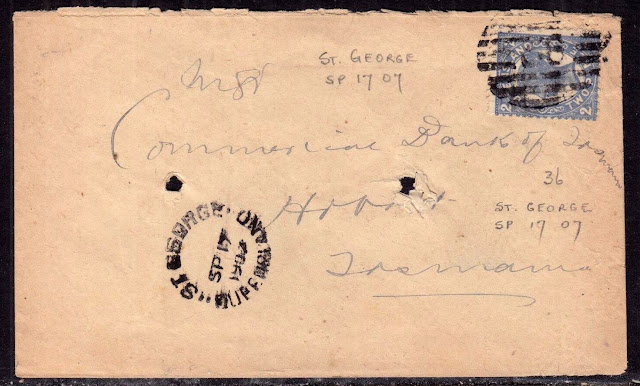 ST. GEORGE
SP 17 07
Mgr
Commercial Bank of Tasmania
Hobart
36
ST. GEORGE
SP 17 07
Tasmania
ST GEORGE
SP 17
1907
QUEENSLAND
TWO
2
2